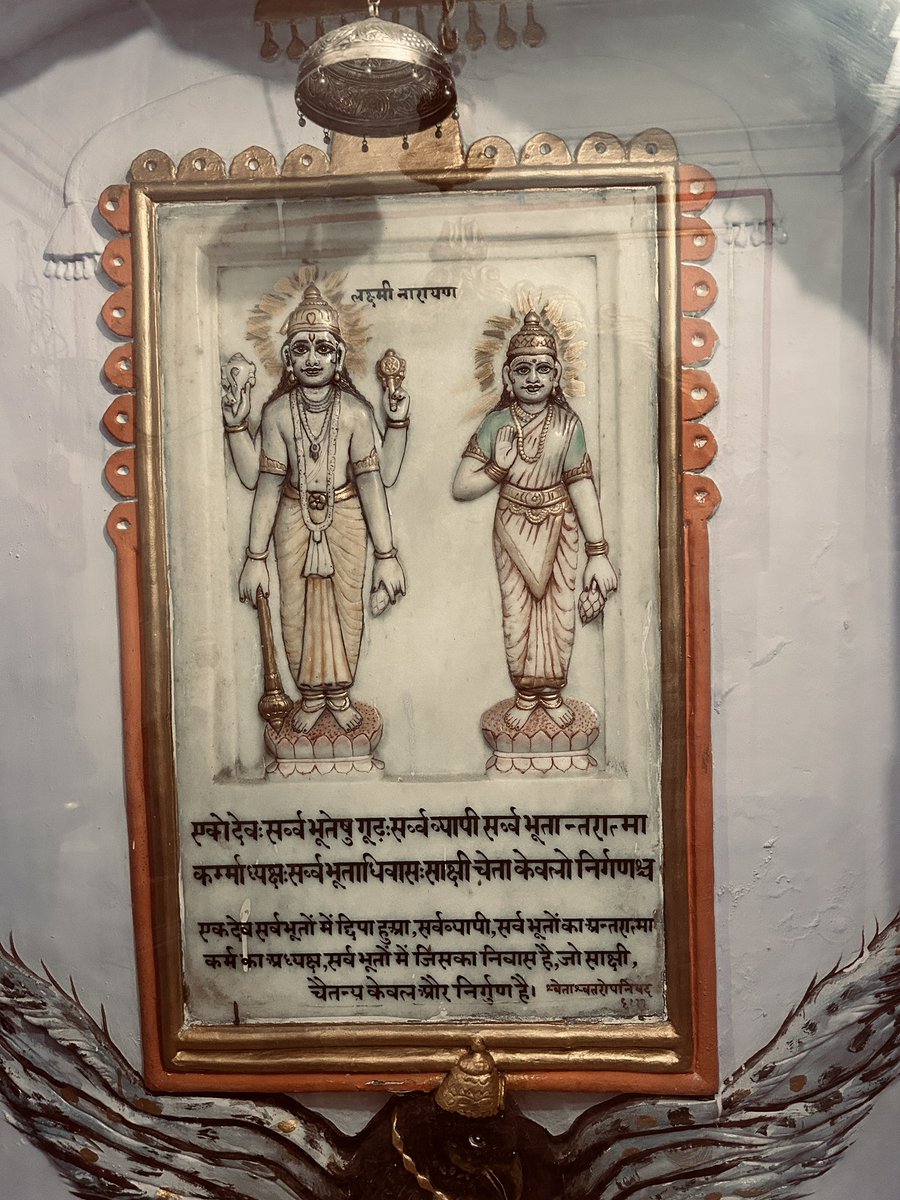 लक्ष्मी नारायण
एको देवः सर्व्व भूतेषु गूढ़ः सर्व्वव्यापी सर्व्व भूतान्तरात्मा
कर्म्माध्यक्षः सर्व्व भूताधिवासः साक्षी चेता केवलो निर्गणश्च
एक देव सर्वभूतों में छिपा हुआ, सर्वव्यापी, सर्व भूतों का अन्तरात्मा
कर्म का अध्यक्ष, सर्व भूतों में जिसका निवास है, जो साक्षी,
चैतन्य केवल और निर्गुण है। श्वेताश्वतरोपनिषद